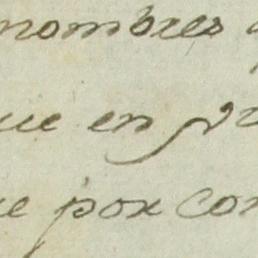 nombres
ue en
e por con